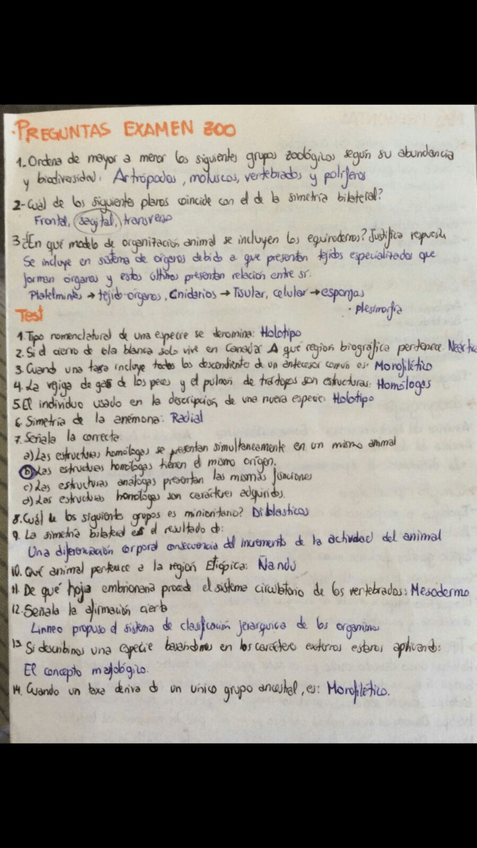 · PREGUNTAS EXAMEN ZOO
1. Ordena de mayor a menor los siguientes grupos zoológicos según su abundancia
y biodiversidad: Artrópodos, moluscos, vertebrados y poríferos
2- Cuál de los siguiente planos coincide con el de la simetría bilateral?
Frontal, sagital, transverso
3 ¿En qué modelo de organización animal se incluyen los equirodermos? Justifica respuesta
Se incluye en sistema de órganos debido a que presentan tejidos especializados que
forman órganos y estos últimos presentan relación entre sí.
Platelmintes → tejido-órganos, Cnidarios → Tisular, celular → esponjas
· plesimorfia
Test
1. Tipo nomenclatural de una especie se denomina: Holotipo
2. Si el ciervo de cola blanca solo vive en Canadá A qué región biográfica pertenece. Neártica
3. Cuando una taxa incluye todos los descendiente de un antecesor común es: Monofilético
4. La vejiga de gas de los peces y el pulmón de tetrápodos son estructuras: Homólogas
5. El individuo usado en la descripción de una nueva especie: Holotipo
6. Simetría de la anémona: Radial
7. Señala la correcta
a) Las estructuras homólogas se presentan simultáneamente en un mismo animal
b) Las estructuras homólogas tienen el mismo origen.
c) Las estructuras análogas presentan las mismas funciones
d) Las estructuras homólogas son carácteres adquiridos.
8. Cuál de los siguiente grupos es minoritario? Diblasticos
9. La simetría bilateral es el resultado d:
Una diferenciación corporal consecuencia del incremento de la actividad del animal
10. Qué animal pertenece a la región Etiópica: Ñandú
11. De qué hoja embrionaria procede el sistema circulatorio de los vertebrados: Mesodermo
12. Señala la afirmación cierta
Linneo propuso el sistema de clasificación jerárquica de los organismos
13. Si describimos una especie basándonos en los carácteres externos estamos aplicando:
El concepto morfológico.
14. Cuando un taxa deriva d un único grupo ancestral, es: Monofilético.